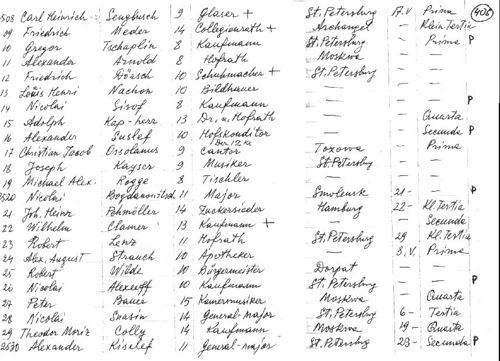 2508 Carl Heinrich Sengbusch 9 Glaser + St. Petersburg 17. V. Prima 406
09 Friedrich Meder 14 Collegienrath + Archangel — Klein Tertia
10 Gregor Tschaplin 8 Kaufmann St. Petersburg — Prima P
11 Alexander Arnold 8 Hofrath Moskwa — —
12 Friedrich 10 Schuhmacher + St. Petersburg — —
13 Louis Henri Nachon 10 Bildhauer — — —
14 Nicolai Sisof 8 Kaufmann — — — P
15 Adolph Kap-herr 13 Dr. u. Hofrath — — Quarta
16 Alexander Suslef 10 Hofkonditor — — Secunda P
17 Christian Jacob Ossolanus 9 Cantor — Prima
18 Joseph Kayser 9 Musiker St. Petersburg — —
19 Michael Alex. Rogge 8 Tischler — — —
2520 Nicolai Bogdanowitsch 11 Major Smolensk 21 - — P
21 Joh. Heinr Pehmöller 14 Zuckersieder Hamburg 22 - Kl. Tertia
22 Wilhelm Clamer 13 Kaufmann + — — Secunda
23 Robert Lenz 11 Hofrath St. Petersburg 29 Kl. Tertia
24 Alex. August Strauch 10 Apotheker — 3. V. Prima
25 Robert Wilde 10 Bürgermeister Dorpat — —
26 Nicolai Alexeeff 10 Kaufmann St. Petersburg — — P
27 Peter Bauer 15 Kamermusiker Moskwa — Quarta
28 Nicolai 14 General-major St. Petersburg 6 - Tertia
29 Theodor Moriz Colly 14 Kaufmann Moskwa 19 - Quarta
2530 Alexander Kiselef 11 General-major St. Petersburg 23 - Secunda P